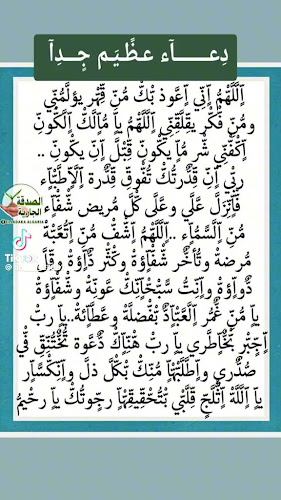 دِعـــــآء عظَيَم جٍدِآ
اَللَّهُمُ اَنِّي اَعَّوذ بُكْ مُنَ قَّهْر يؤلَمُّنِي
ومُنَ فَكْر يقلَقَنِي اَللَّهُمُ يا مُاَلَكْ اَلَكْوَنَ
اَكَفَنِّي شَر مُاَ يكُونَ قِبْلَ اَنَ يكونَ ..
ربّي اَنَ قَدرتُكْ تُفَوقَ قَدرة اَلَاَطْبَّاَء
فَاَنِزْلَ عَّلَي وعَّلَى كُلَ مُريض شْفَاَء
مُنَ اَلَسَّمُاَء ..اَللَّهُمُ اَشْفَ مُنَ اَتُعَبْهْ
مُرضهْ وتُأخٌر شْفَاَؤهْ وكْثْر دَاَؤهْ وقَلَ
دَوَاَؤهْ واَنِتْ سَبْحْاَنَكْ عَّونَهْ وشْفَاَؤهْ
ياَ مُنَ غٌمُر اَلَعّبْاَدَ بْفَضْلَهْ وعَّطْاَئهْ..ياَ ربْ
اَجٌبْر بْخْاَطْري ياَ ربْ هْنَاَكْ دَعّوة تُخْتُنَقِ فْي
صْدري واَطْلَبْهْاَ مُنَكْ بْكُلَ ذلَ واَنِكْسَاَر
ياَ اَللَّهْ اَثْلَجٌ قَلَبْي بْتُحْقِيقِهْاَ رجٌوتُكْ ياَ رحْيمُ
الصدقة
الجارية
TikTok